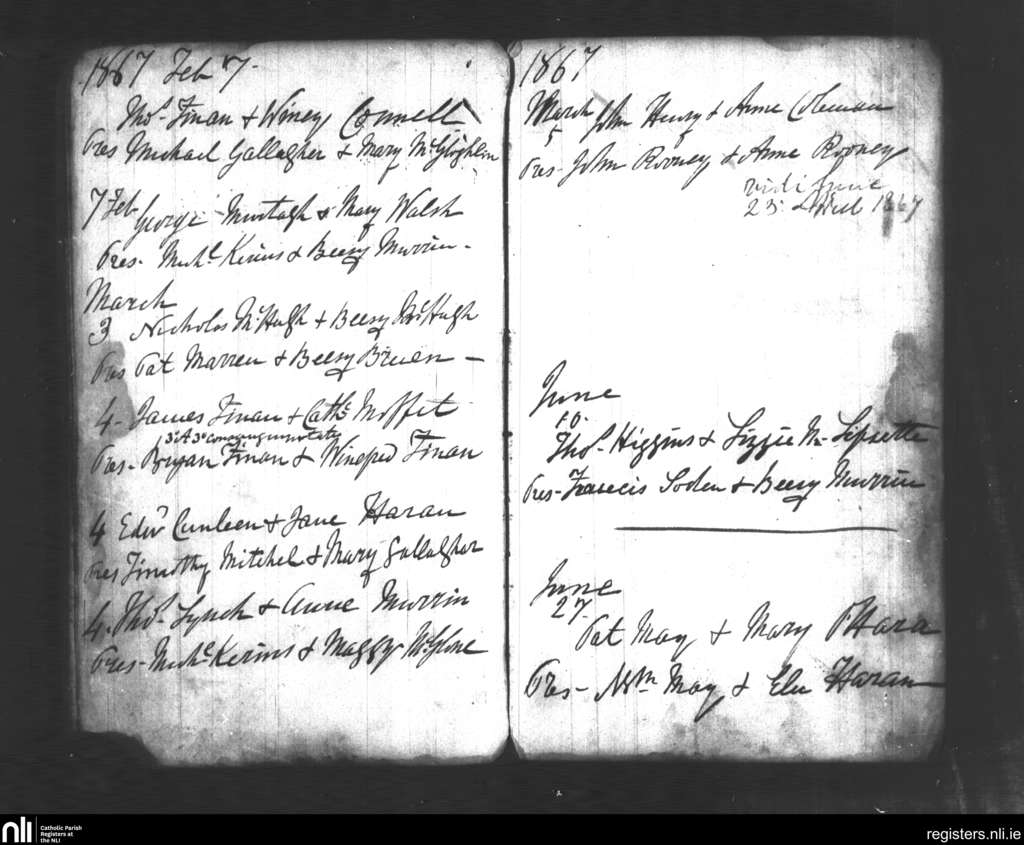 1867 Feb 7.
Thos. Finan & Winey Connell
Pres Michael Gallagher & Mary McGloghlin
7 Feb George Murtagh & Mary Walsh
Pres- Michl Kerins & Beesy Murrin-
March
3 Nicholas McHugh & Beesy McHugh
Pres Pat Marren & Beesy Bruen -
4- James Finan & Cathe Moffet
3 & 3 consanguinitate
Pres- Bryan Finan & Winefred Finan
4 Edwd Cunleen & Jane Haran
Pres Timothy Mitchel & Mary Gallagher
4. Thos. Lynch & Anne Murrin
Pres- Michl Kerins & Maggy McGlone
1867
March John Henry & Anne Coleman
5
Pres- John Rooney & Anne Rooney
vidi
23. April 1867
June
10.
Thos. Higgins & Lizzie Mc Lipsette
Pres- Francis Soden & Beesy Murrin
June
27.
Pat May & Mary O'Hara
Pres- Wm May & Eln Haran
nli
Catholic Parish
Registers at
the NLI
registers.nli.ie